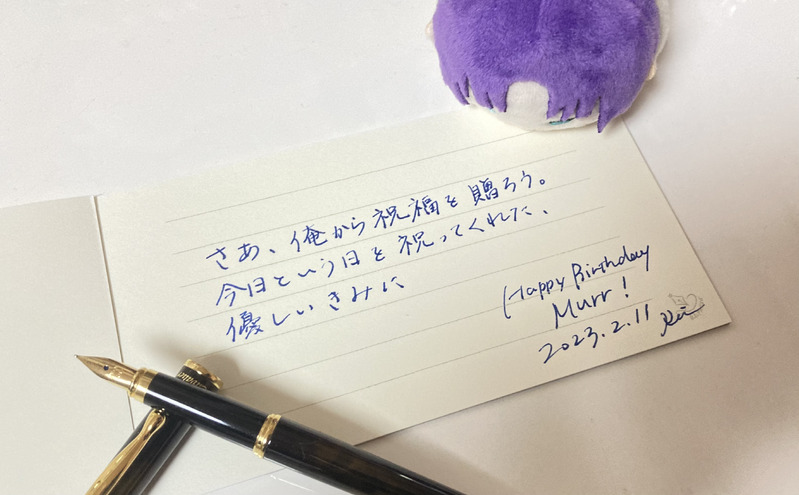 さあ、俺から祝福を贈ろう。
今日という日を祝ってくれた、
優しいきみに
Happy Birthday
Murr!
2023.2.11